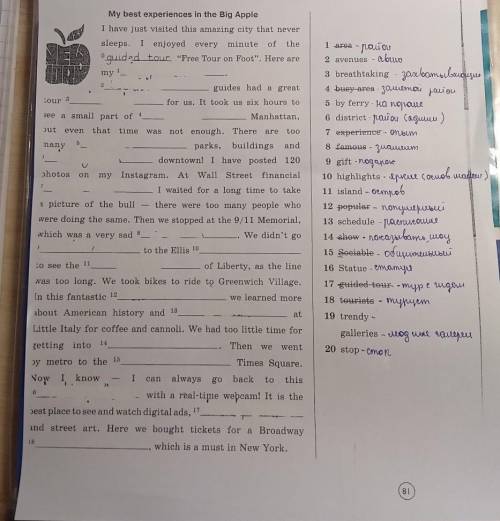 My best experiences in the Big Apple
NEW YORK
I have just visited this amazing city that never
sleeps. I enjoyed every minute of the
0 guided tour "Free Tour on Foot". Here are
my 1 .
2 guides had a great
tour 3 for us. It took us six hours to
see a small part of 4 Manhattan,
but even that time was not enough. There are too
many 5 parks, buildings and
downtown! I have posted 120
photos on my Instagram. At Wall Street financial
7 I waited for a long time to take
a picture of the bull — there were too many people who
were doing the same. Then we stopped at the 9/11 Memorial,
which was a very sad 8 . We didn't go
to the Ellis 10
to see the 11 of Liberty, as the line
was too long. We took bikes to ride to Greenwich Village.
In this fantastic 12 we learned more
about American history and 13 at
Little Italy for coffee and cannoli. We had too little time for
getting into 14 . Then we went
by metro to the 15 Times Square.
Now I know — I can always go back to this
6 with a real-time webcam! It is the
best place to see and watch digital ads, 17
and street art. Here we bought tickets for a Broadway
18 , which is a must in New York.
1 area - район
2 avenues - авию
3 breathtaking - захватывающии
4 busy area - район
5 by ferry - на
6 district - район
7 experience - опыт
8 famous - знаменит
9 gift - подарок
10 highlights - яркие
11 island - остров
12 popular - популярный
13 schedule - расписание
14 show - показывать, шоу
15 Sociable - общительный
16 Statue - статуя
17 guided tour - тур с гидом
18 tourists - турист
19 trendy -
galleries - модные галереи
20 stop - стоп
81